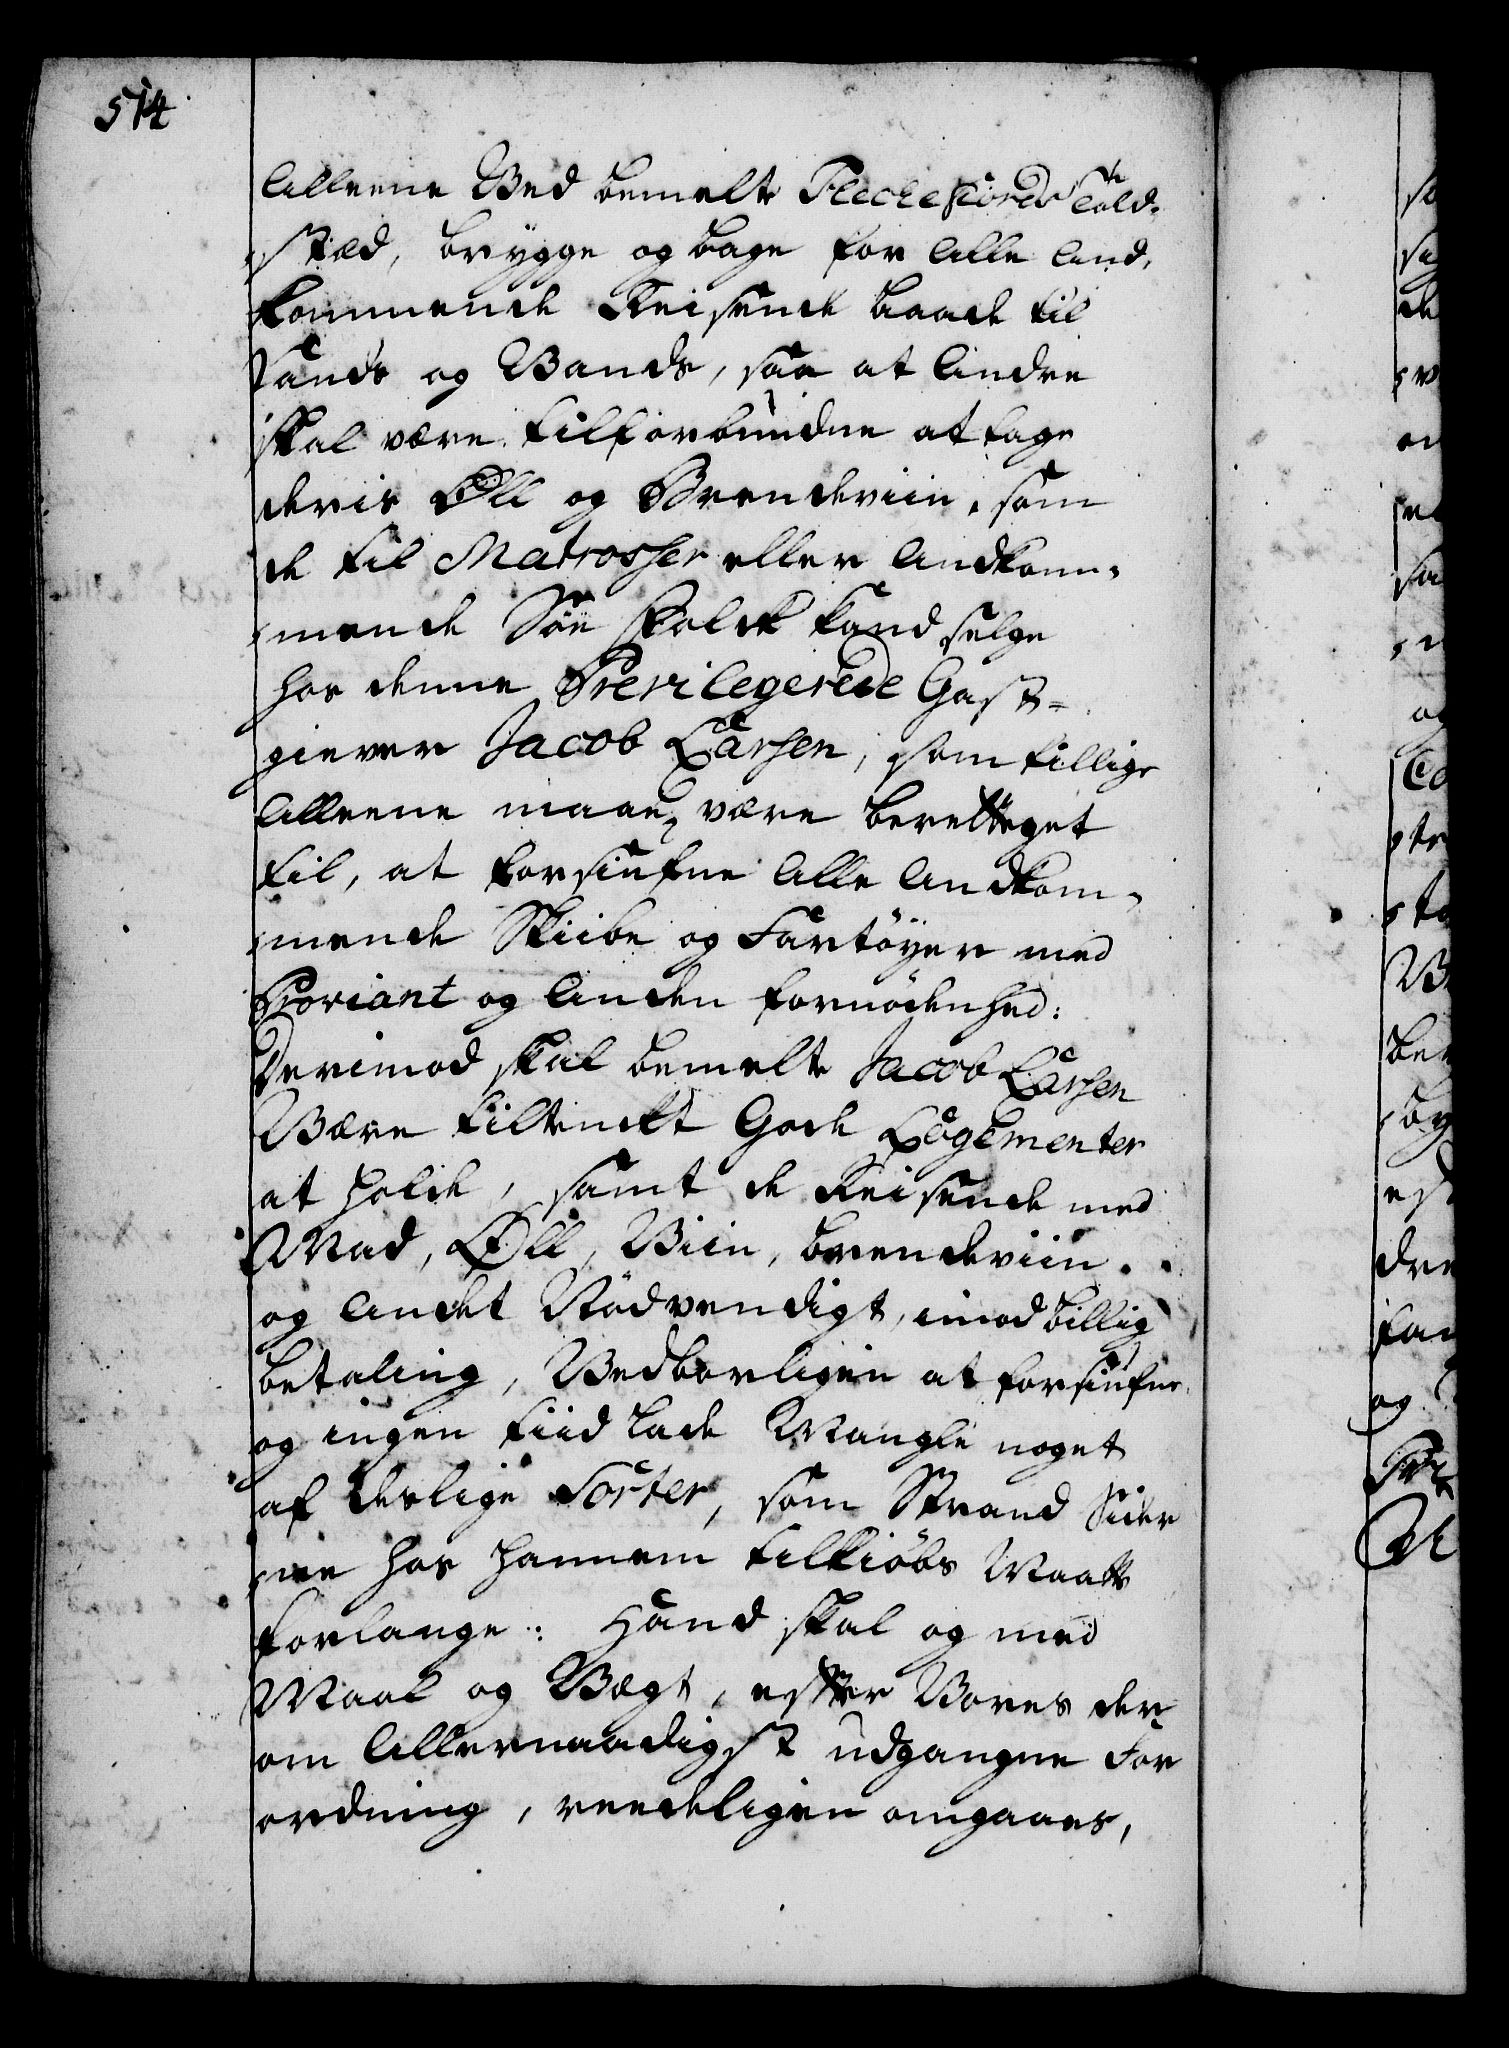 514
Alleene Ved bemelte Fleckefiords Told-
stæd, brygge og bage for Alle And-
kommende Reisende baade til
Lands og Vands, saa at Andre
skal være tilforbundne at tage
deris Øll og Brendeviin, som
de til Matrosser eller Andkom-
mende Søe Folck kand selge
hos denne Previlegerede Gast-
giever Jacob Larsen, som tillige
Alleene maae være berettiget
til, at forsiufne Alle Andkom-
mende Skiibe og Fartøyer med
Proviant og Anden fornødenhed:
Derimod skal bemelte Jacob Larsen
Være tiltenckt Gode Logementer
at holde, samt de Reisende med
Mad, Øll, Viin, brendeviin
og Andet Nødvendigt, imod billig
betaling, Vedbørligen at forsiufne
og ingen tiid lade Mangle noget
af deslige Sorter, som Strand Sider
ne hos hannem tilkiøbs Maatte
forlange: Hand skal og med
Maal og Vægt, efter Vores der
om Allernaadigst udgangne For
ordning, reedeligen omgaaes,